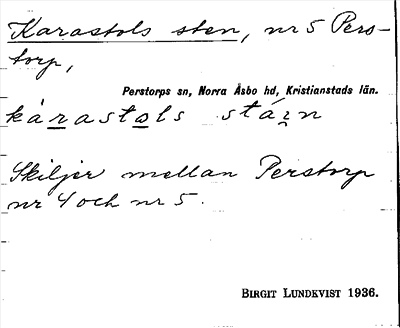 Karastols sten, nr 5 Pers-
torp,
Perstorps sn, Norra Åsbo hd, Kristianstads län.
kárastols stáɛn
Skiljer mellan Perstorp
nr 4 och nr 5.
BIRGIT LUNDKVIST 1936.